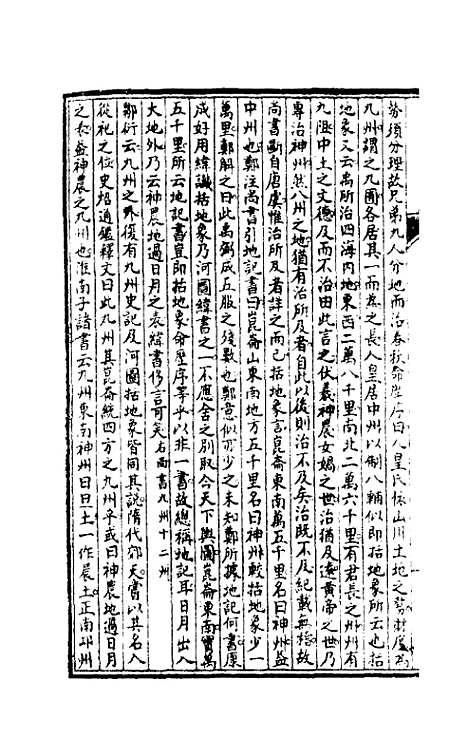 勢須分理故兄弟九人分地而治春秋命歷序曰人皇氏依山川土地之勢財度爲
九州謂之九囿各居其一而爲之長人皇居中州以制八輔似即括地象所云也括
地象又云禹所治四海内地東西二萬八千里南北二萬六千里有君長之州州有
九阻中土之文德及而不治由此言之伏羲神農女媧之世治猶及遠黃帝之世乃
專治神州然八州之地猶有治所及者自此以後則治不及矣治既不及紀載無稽故
尚書斷自唐虞惟治所及者詳之而已括地象言崑崙東南萬五千里名曰神州益
中州也鄭注尚書引地記書曰崑崙山東南地方五千里名曰神州較括地象少一
萬里鄭解之曰此禹弼成五服之後數也鄭意似亦少之未知鄭所據地記何書原
成好用緯讖括地象乃河圖緯書之一不應舍之別取今天下輿圖崑崙東南實萬
五千里所云地記書豈即括地象命歷序等乎以非一書故總稱地記耳日月出入
大地外乃云神農地過日月之表緯書侈言可矣右尚書九州十二州
鄒衍云九州之外復有九州史記及河圖括地象皆同其說隋代郊天嘗以其名入
從祀之位史炤通鑑釋文曰此九州其崑崙統四方之九州乎或曰神農地過日月
之表益神農之九州也淮南子諸書云九州東南神州曰旦土一作晨土正南卭州